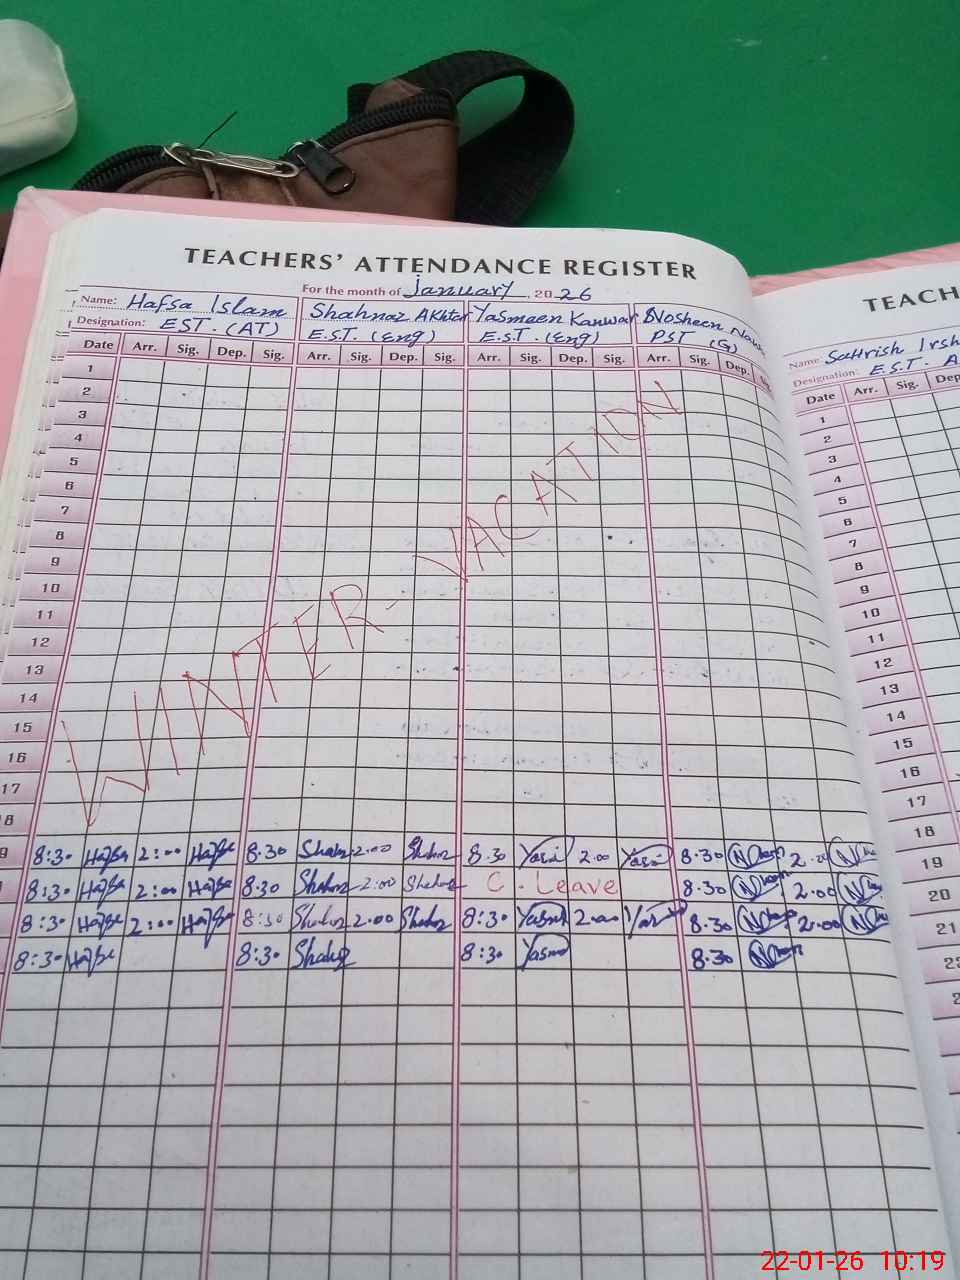 TEACHERS' ATTENDANCE REGISTER
For the month of January, 2026
Name: Hafsa Islam Shahnaz Akhtar Yasmeen Kanwar Nosheen
Designation: EST. (AT) E.S.T. (Eng) E.S.T. (Eng) PST (G)
Date Arr. Sig. Dep. Sig. Arr. Sig. Dep. Sig. Arr. Sig. Dep. Sig. Arr. Sig. Dep.
1
2
3
4
5
6
7
8
9
10
11
12
13
14
15
16
17
18
WINTER - VACATION
9 8:30 Hafsa 2:00 Hafsa 8.30 Shahnz 2.00 Shahnz 8.30 Yasm 2.00 Yasm 8.30 2.00
8:30 Hafsa 2:00 Hafsa 8.30 Shahnz 2:00 Shahnz C. Leave 8.30 2.00
8:30 Hafsa 2:00 Hafsa 8:30 Shahnz 2.00 Shahnz 8:30 Yasm 2.00 Yas 8.30 2.00
8:30 Hafsa 8:30 Shahnz 8:30 Yasm 8.30
TEACH
Name Sahrish Irsh
Designation: E.S.T. A
Date Arr. Sig. Dep
1
2
3
4
5
6
7
8
9
10
11
12
13
14
15
16
17
18
19
20
21
22
22-01-26 10:19